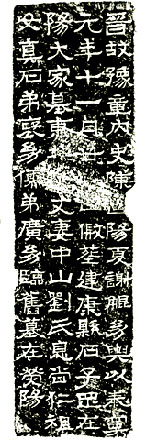 晉故豫章内史陳陽夏謝鯤幼輿以泰寧
元年十一月廿假葬建康縣石子罡在
陽大家墓東丈妻中山劉氏息尚仁祖
女真石弟褒幼儒弟廣幼臨舊墓在熒陽